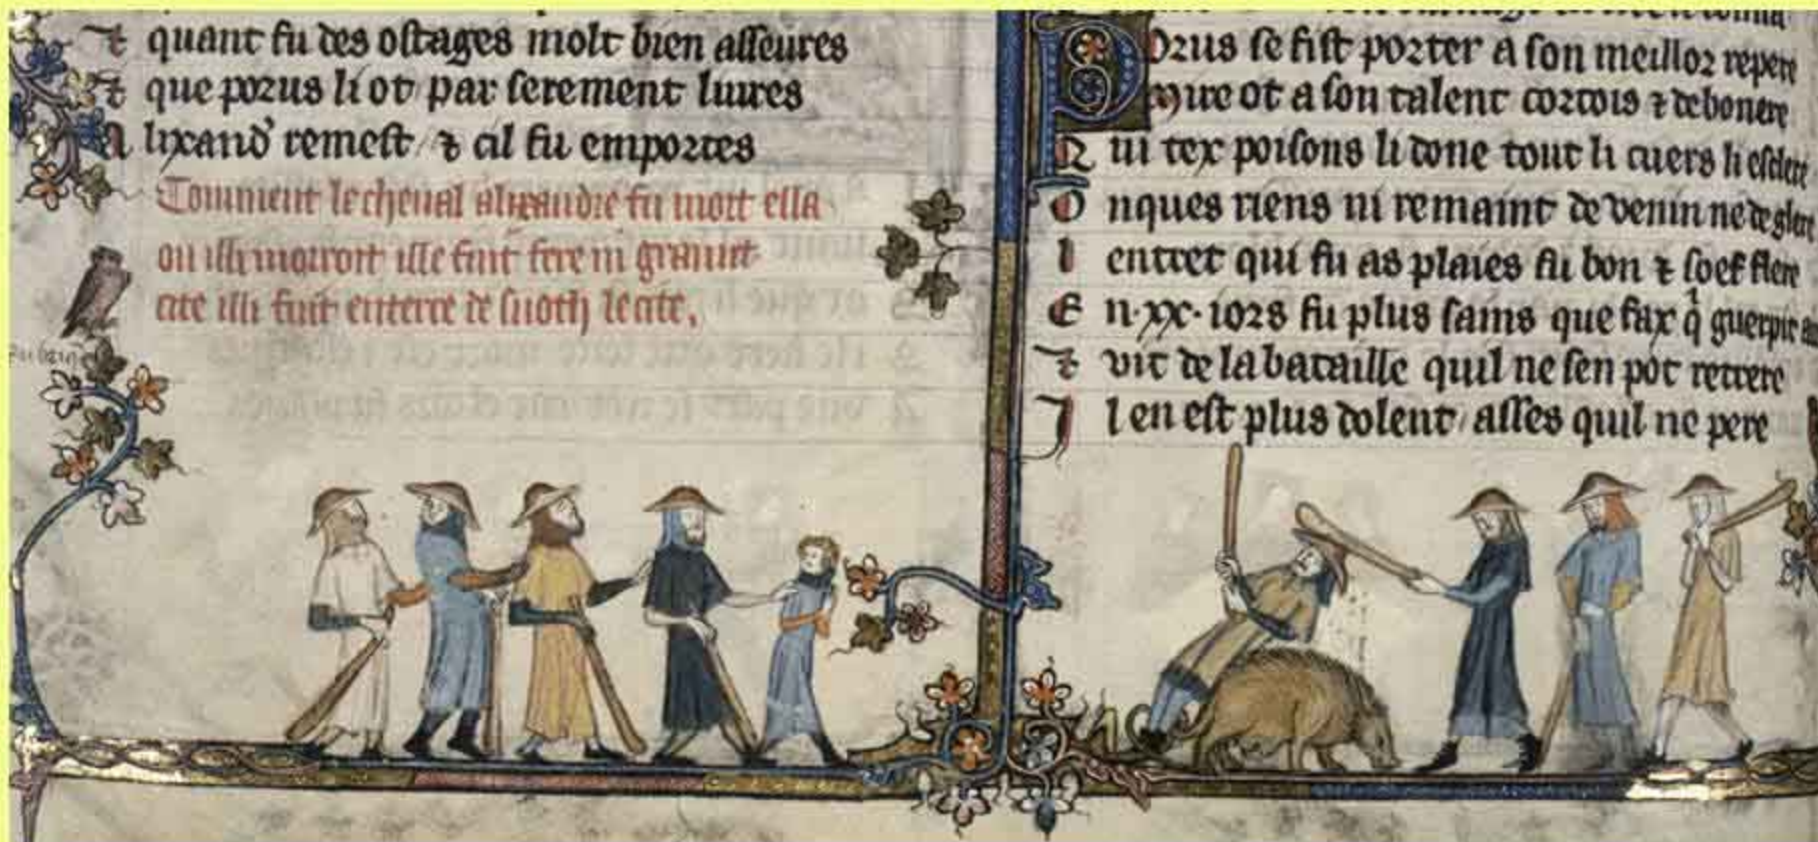 ⁊ quant fu des ostages molt bien asseures
⁊ que porus li ot par serement liures
A lixand' remest / ⁊ cil fu emportes
Comment le cheual alixandre fu mort ella
ou illi morroit ille fuit fere
cite illi fuit enterre le cite.
Porus se fist porter a son meillor repere
mire ot a son talent cortois ⁊ debonere
Q ui tex poisons li done tout li cuers li esclere
O nques riens ni remaint de venin ne de glere
l entret qui fu as plaies fu bon ⁊ soef flere
E n .xx. iors fu plus sains que q guerpir
⁊ vit de la bataille quil ne sen pot retrere
I l en est plus dolent / asses quil ne pere